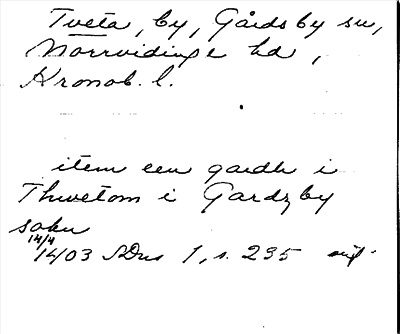 Tveta, by, Gårdsby sn,
Norrvidinge hd,
Kronob. l.
item een gardh i
Thwetom i Gardzby
sokn
14/4
1403 SDns 1, s. 295